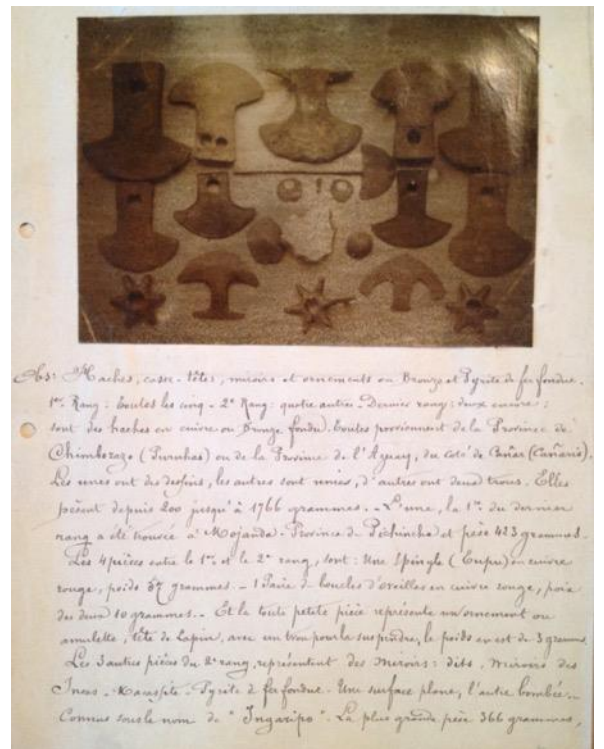 Haches, casse-têtes, miroirs et ornements en Bronze et Pyrite de fer fondue.
1er Rang: toutes les cinq - 2e Rang: quatre autres. Dernier rang: deux encore:
sont des haches en cuivre ou Bronze fondu. Toutes proviennent de la Province de
Chimborazo (Puruhas) ou de la Province de l'Azuay, du coté de Cañar (Cañaris).
Les unes ont des dessins, les autres sont unies, d'autres ont deux trous. Elles
pèsent depuis 200 jusqu'à 1766 grammes. - L'une, la 1re du dernier
rang a été trouvée à Mojanda - Province de Pichincha et pèse 423 grammes.
Les 4 pièces entre le 1er et le 2e rang, sont: Une Epingle (Tupu) en cuivre
rouge, poids 37 grammes. - 1 Paire de boucles d'oreilles en cuivre rouge, poids
des deux 10 grammes. - Et la toute petite pièce représente un ornement ou
amulette, tête de Lapin, avec un trou pour la suspendre, le poids en est de 3 grammes
Les 3 autres pièces du 2e rang, représentent des Miroirs: dits, Miroirs des
Incas - Marcassite - Pyrite de fer fondue. Une surface plane, l'autre bombée. -
Connus sous le nom de "Ingarirpo". La plus grande pèse 366 grammes,